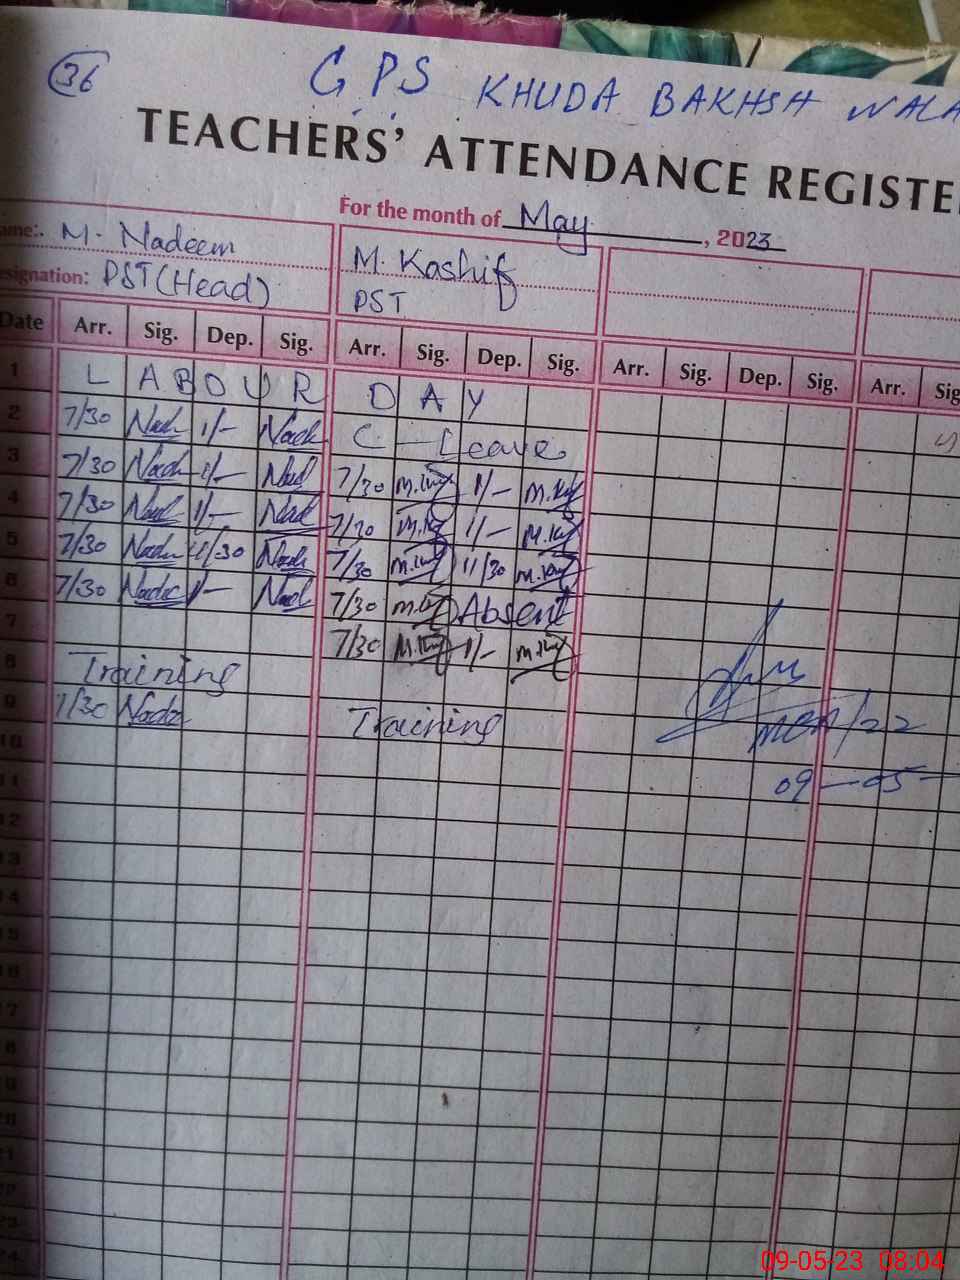 36 G P S KHUDA BAKHSH NALA
TEACHERS' ATTENDANCE REGISTE
For the month of May , 2023
ame:. M. Nadeem M. Kashif
esignation: PST (Head) PST
Date Arr. Sig. Dep. Sig. Arr. Sig. Dep. Sig. Arr. Sig. Dep. Sig. Arr. Sig
1 L A B O U R D A Y
2 7/30 1/- C - Leave
3 7/30 1/- 7/30 1/-
4 7/30 1/- 7/30 1/-
5 7/30 11/30 7/30 11/30
6 7/30 1/- 7/30 Absent
7 7/30 1/-
8 Training
9 7/30 Training
10 MEA/22
11 09-05-
12
13
14
15
16
17
18
19
20
21
22
23
24
09-05-23 08:04